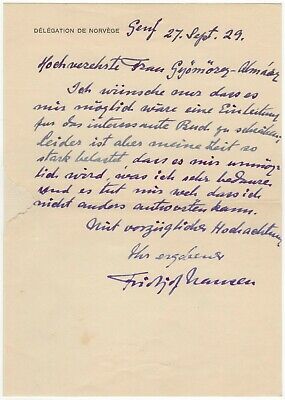 DÉLÉGATION DE NORVÈGE
Genf 27. Sept. 29.
Hochverehrte Frau Gyömörey-
Ich wünsche nur dass es
mir möglich wäre eine Einleitung
für das interessante Buch zu schreiben,
leider ist aber meine Zeit so
stark belastet, dass es mir unmög-
lich wird, was ich sehr bedaure,
und es tut mir weh dass ich
nicht anders antworten kann.
Mit vorzüglicher Hochachtung
Ihr ergebener
Fridtjof Nansen